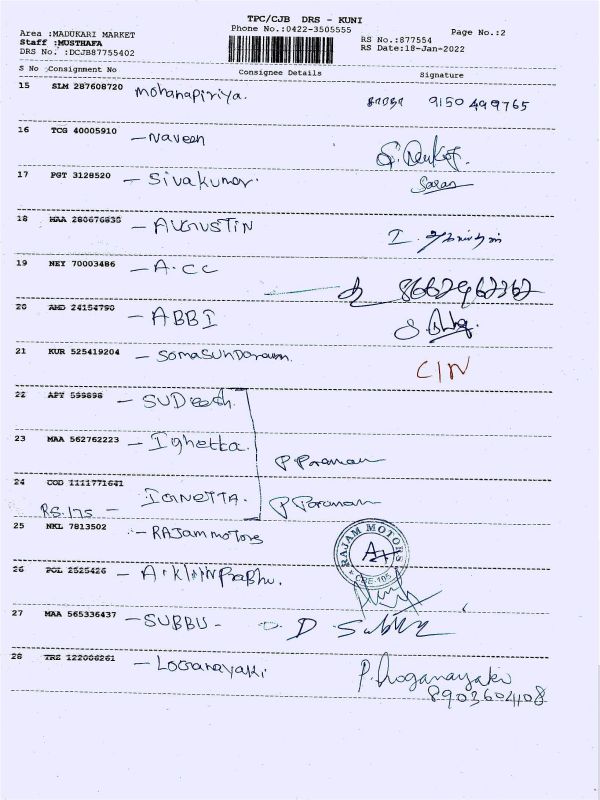 TPC/CJB DRS - KUNI
Area :MADUKARI MARKET
Phone No.:0422-3505555
Page No.:2
Staff :MUSTHAFA
RS No.:877554
DRS No. :DCJB87755402
RS Date:18-Jan-2022
S No Consignment No Consignee Details Signature
15 SLM 287608720 Mohanapiriya. 9150 499765
16 TCG 40005910 - Naveen
17 PGT 3128520 - Sivakumar. Saran
18 MAA 280676635 - AUGUSTIN
19 NEY 70003486 - A.CC 8662962362
20 AMD 24154790 - ABBI
21 KUR 525419204 - SomaSunDaram. CIN
22 APT 599898 - SUDeesh.
23 MAA 562762223 - Ighetta. P Poranan
24 COD 1111771641
RS.175 - IGNETTA. P Poranan
25 NKL 7813502 - RAJam motors RAJAM MOTORS
26 POL 2525426 - Prabhu. CBE-105
27 MAA 565336437 - SUBBU - D Subbu
28 TRZ 122006261 - Loganayaki P. Loganayaki
8903604108